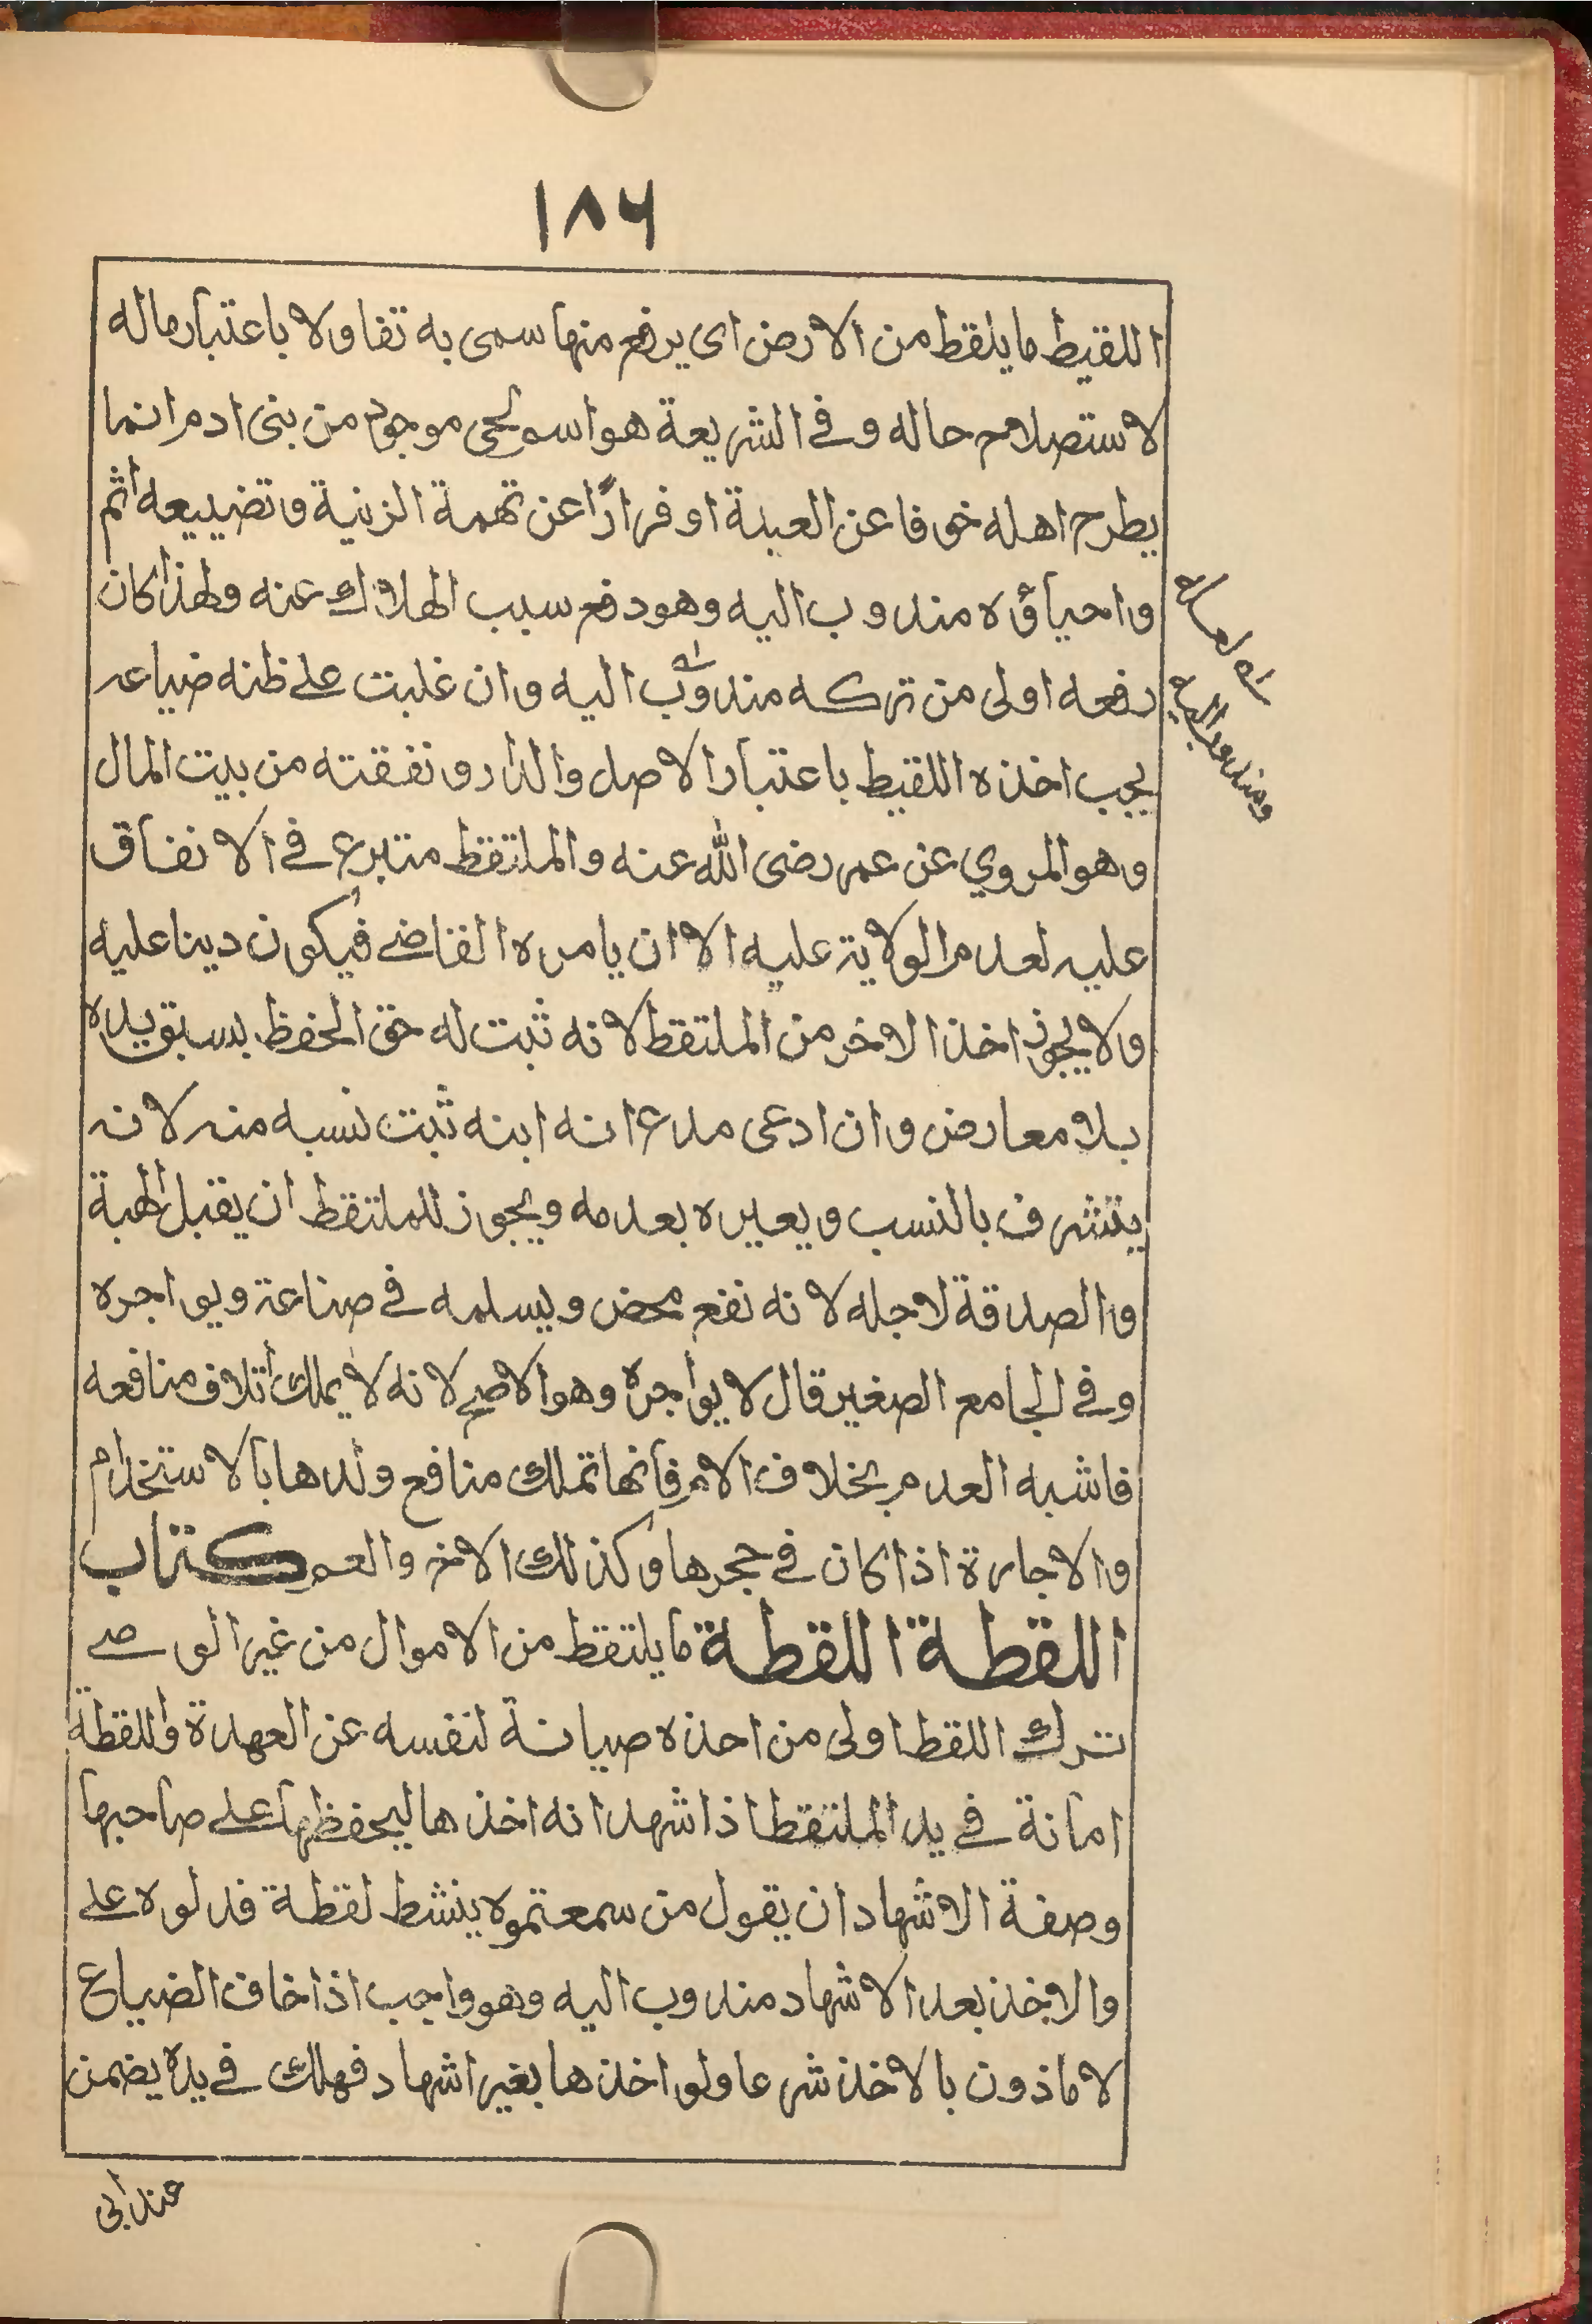 ١٨٦
اللقيط ما يلقط من الارض اى يرفع منها سمى به تفاولا باعتبار ماله
لاستصلاح حاله وفى الشريعة هو اسم لحى موجود من بنى ادم انما
يطرح اهله خوفا عن العيلة او فرارًا عن تهمة الزنية وتضييعه اثم
واحياؤه مندوب اليه وهو دفع سبب الهلاك عنه ولهذا كان
رفعه اولى من تركه مندوب اليه وان غلبت على ظنه ضياعه
يجب اخذه اللقيط باعتبار الاصل والدار ونفقته من بيت المال
وهو المروي عن عمر رضى الله عنه والملتقط متبرع فى الانفاق
عليه لعدم الولاية عليه الا ان يامره القاضى فيكون دينا عليه
ولا يجوز اخذ الاخر من الملتقط لانه ثبت له حق الحفظ بسبق يده
بلا معارض وان ادعى مدع انه ابنه ثبت نسبه منه لانه
يتشرف بالنسب ويعيره بعدمه ويجوز للملتقط ان يقبل الهبة
والصدقة لاجله لانه نفع محض ويسلمه فى صناعة ويواجره
وفى الجامع الصغير قال لا يواجره وهو الاصح لانه لا يملك اتلاف منافعه
فاشبه العدم بخلاف الام فانها تملك منافع ولدها بالاستخدام
والاجارة اذا كان فى حجرها وكذلك الاخ والعم كتاب
اللقطة اللقطة ما يلتقط من الاموال من غير الوصى
ترك اللقطا اولى من احذه صيانة لنفسه عن العهدة واللقطة
امانة فى يد الملتقط اذا شهد انه اخذها ليحفظها على صاحبها
وصفة الاشهاد ان يقول من سمعتموه ينشط لقطة فدلوه على
والاخذ بعد الاشهاد مندوب اليه وهو واجب اذا خاف الضياع
لا ماذون بالاخذ شرعا ولو اخذها بغير اشهاد فهلك فى يده يضمن
عند ابى